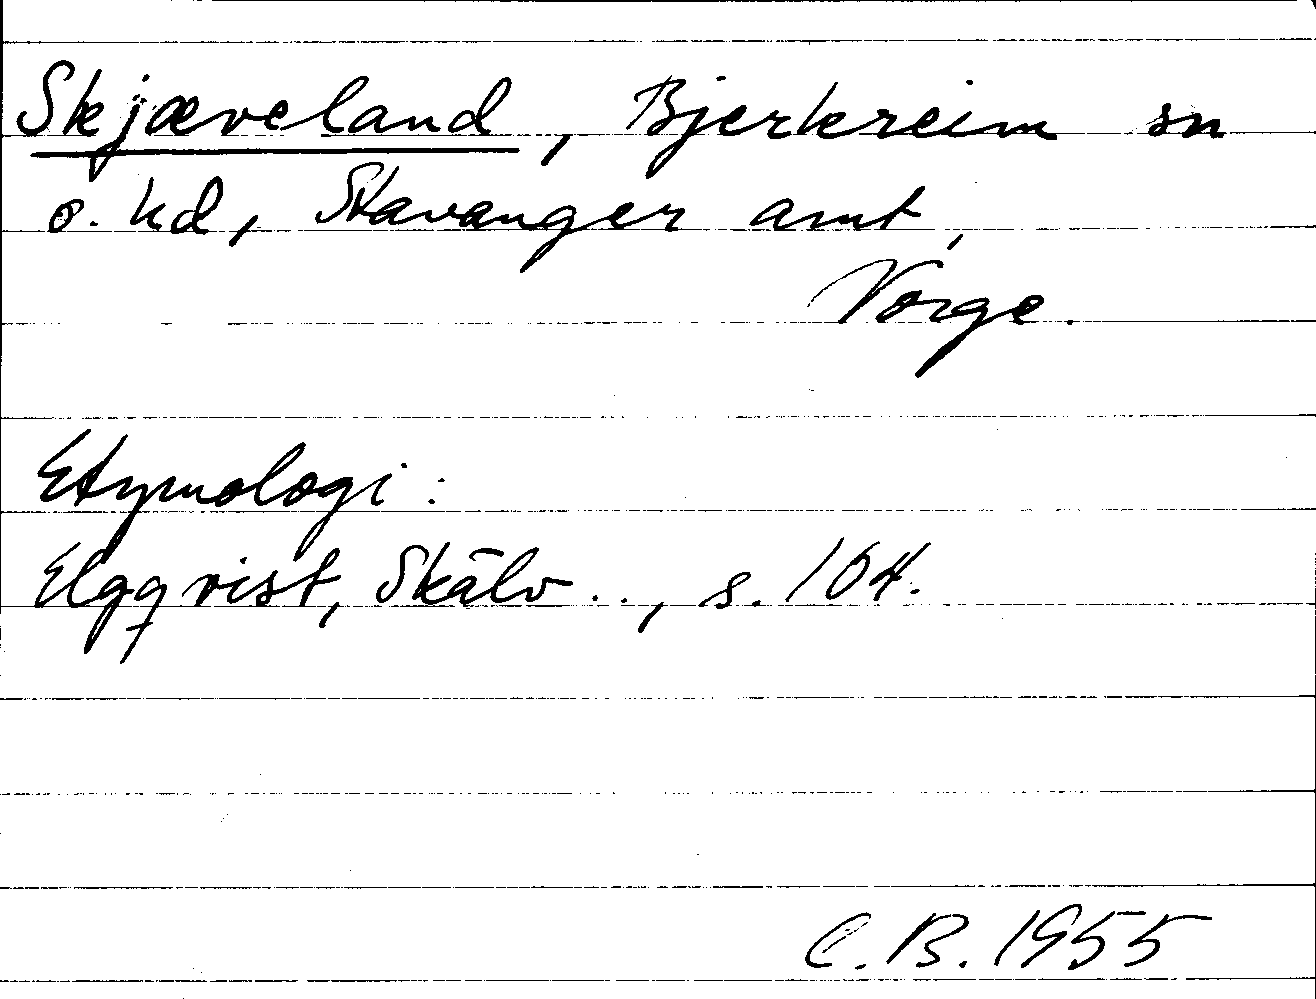 Skjæveland, Bjerkreim sn
o. hd, Stavanger amt,
Norge.
Etymologi:
Elgqvist, Skälv . . , s. 104.
C. B. 1955